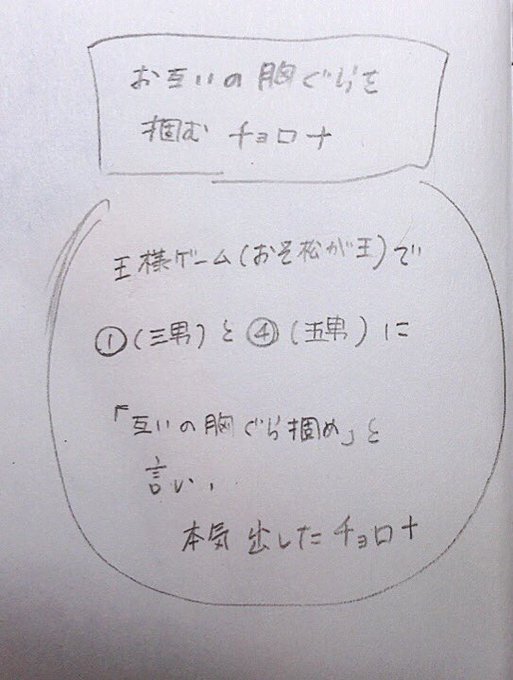 お互いの胸ぐらを
掴む チョロナ
王様ゲーム(おそ松が王)で
①(三男)と④(五男)に
「互いの胸ぐら掴め」と
言い、
本気出したチョロナ